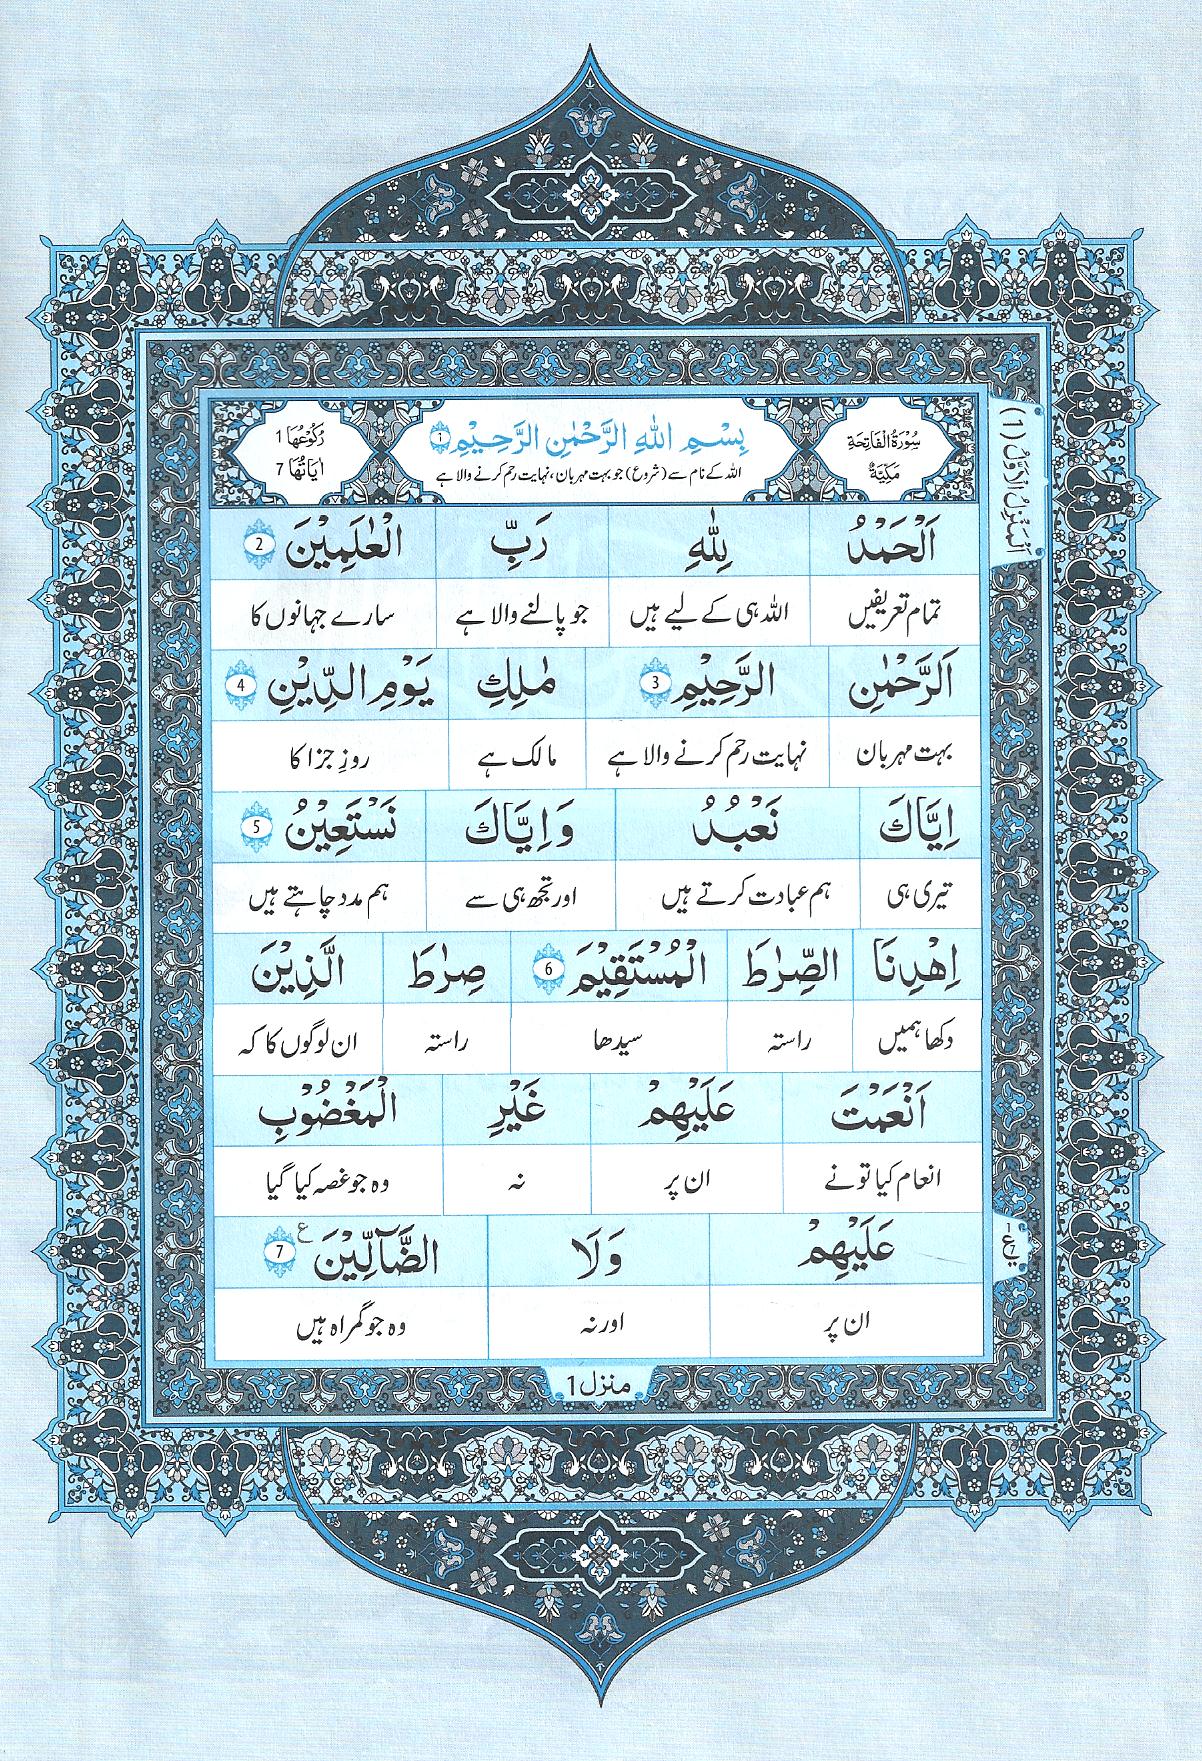 سُوْرَةُ الْفَاتِحَةِ مَكِّيَّةٌ
بِسْمِ اللّٰهِ الرَّحْمٰنِ الرَّحِيْمِ ۝١
اللہ کے نام سے (شروع) جو بہت مہربان، نہایت رحم کرنے والا ہے
رُكُوْعُهَا 1
اٰيَاتُهَا 7
اَلْمَنْزِلُ الْاَوَّلُ (1)
اَلْحَمْدُ لِلّٰهِ رَبِّ الْعٰلَمِيْنَ 2
تمام تعریفیں اللہ ہی کے لیے ہیں جو پالنے والا ہے سارے جہانوں کا
اَلرَّحْمٰنِ الرَّحِيْمِ 3 مٰلِكِ يَوْمِ الدِّيْنِ 4
بہت مہربان نہایت رحم کرنے والا ہے مالک ہے روزِ جزا کا
اِيَّاكَ نَعْبُدُ وَاِيَّاكَ نَسْتَعِيْنُ 5
تیری ہی ہم عبادت کرتے ہیں اور تجھ ہی سے ہم مدد چاہتے ہیں
اِهْدِنَا الصِّرٰطَ الْمُسْتَقِيْمَ 6 صِرٰطَ الَّذِيْنَ
دکھا ہمیں راستہ سیدھا راستہ ان لوگوں کا کہ
اَنْعَمْتَ عَلَيْهِمْ غَيْرِ الْمَغْضُوْبِ
انعام کیا تو نے ان پر نہ وہ جو غصہ کیا گیا
عَلَيْهِمْ وَلَا الضَّآلِّيْنَ ع 7
ان پر اور نہ وہ جو گمراہ ہیں
1 ع 7
منزل 1